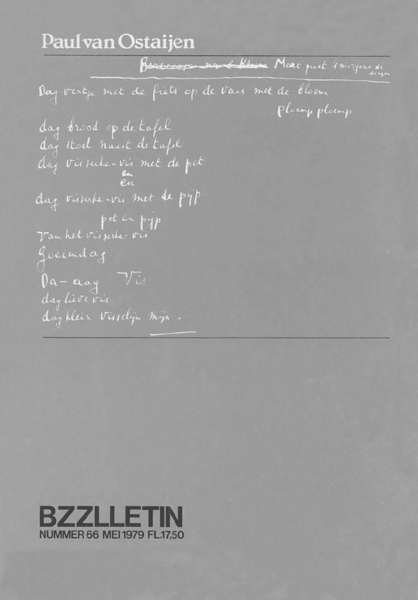 Paul van Ostaijen
Marc groet 's morgens de dingen
Dag ventje met de fiets op de vaas met de bloem
ploem ploem
dag brood op de tafel
dag stoel naast de tafel
dag visserke-vis met de pet
en
en
dag visserke-vis met de pijp
pet en pijp
van het visserke-vis
Goeiendag
Da-aag Vis
dag lieve vis
dag klein visselijn mijn.
BZZLLETIN
NUMMER 66 MEI 1979 FL.17,50